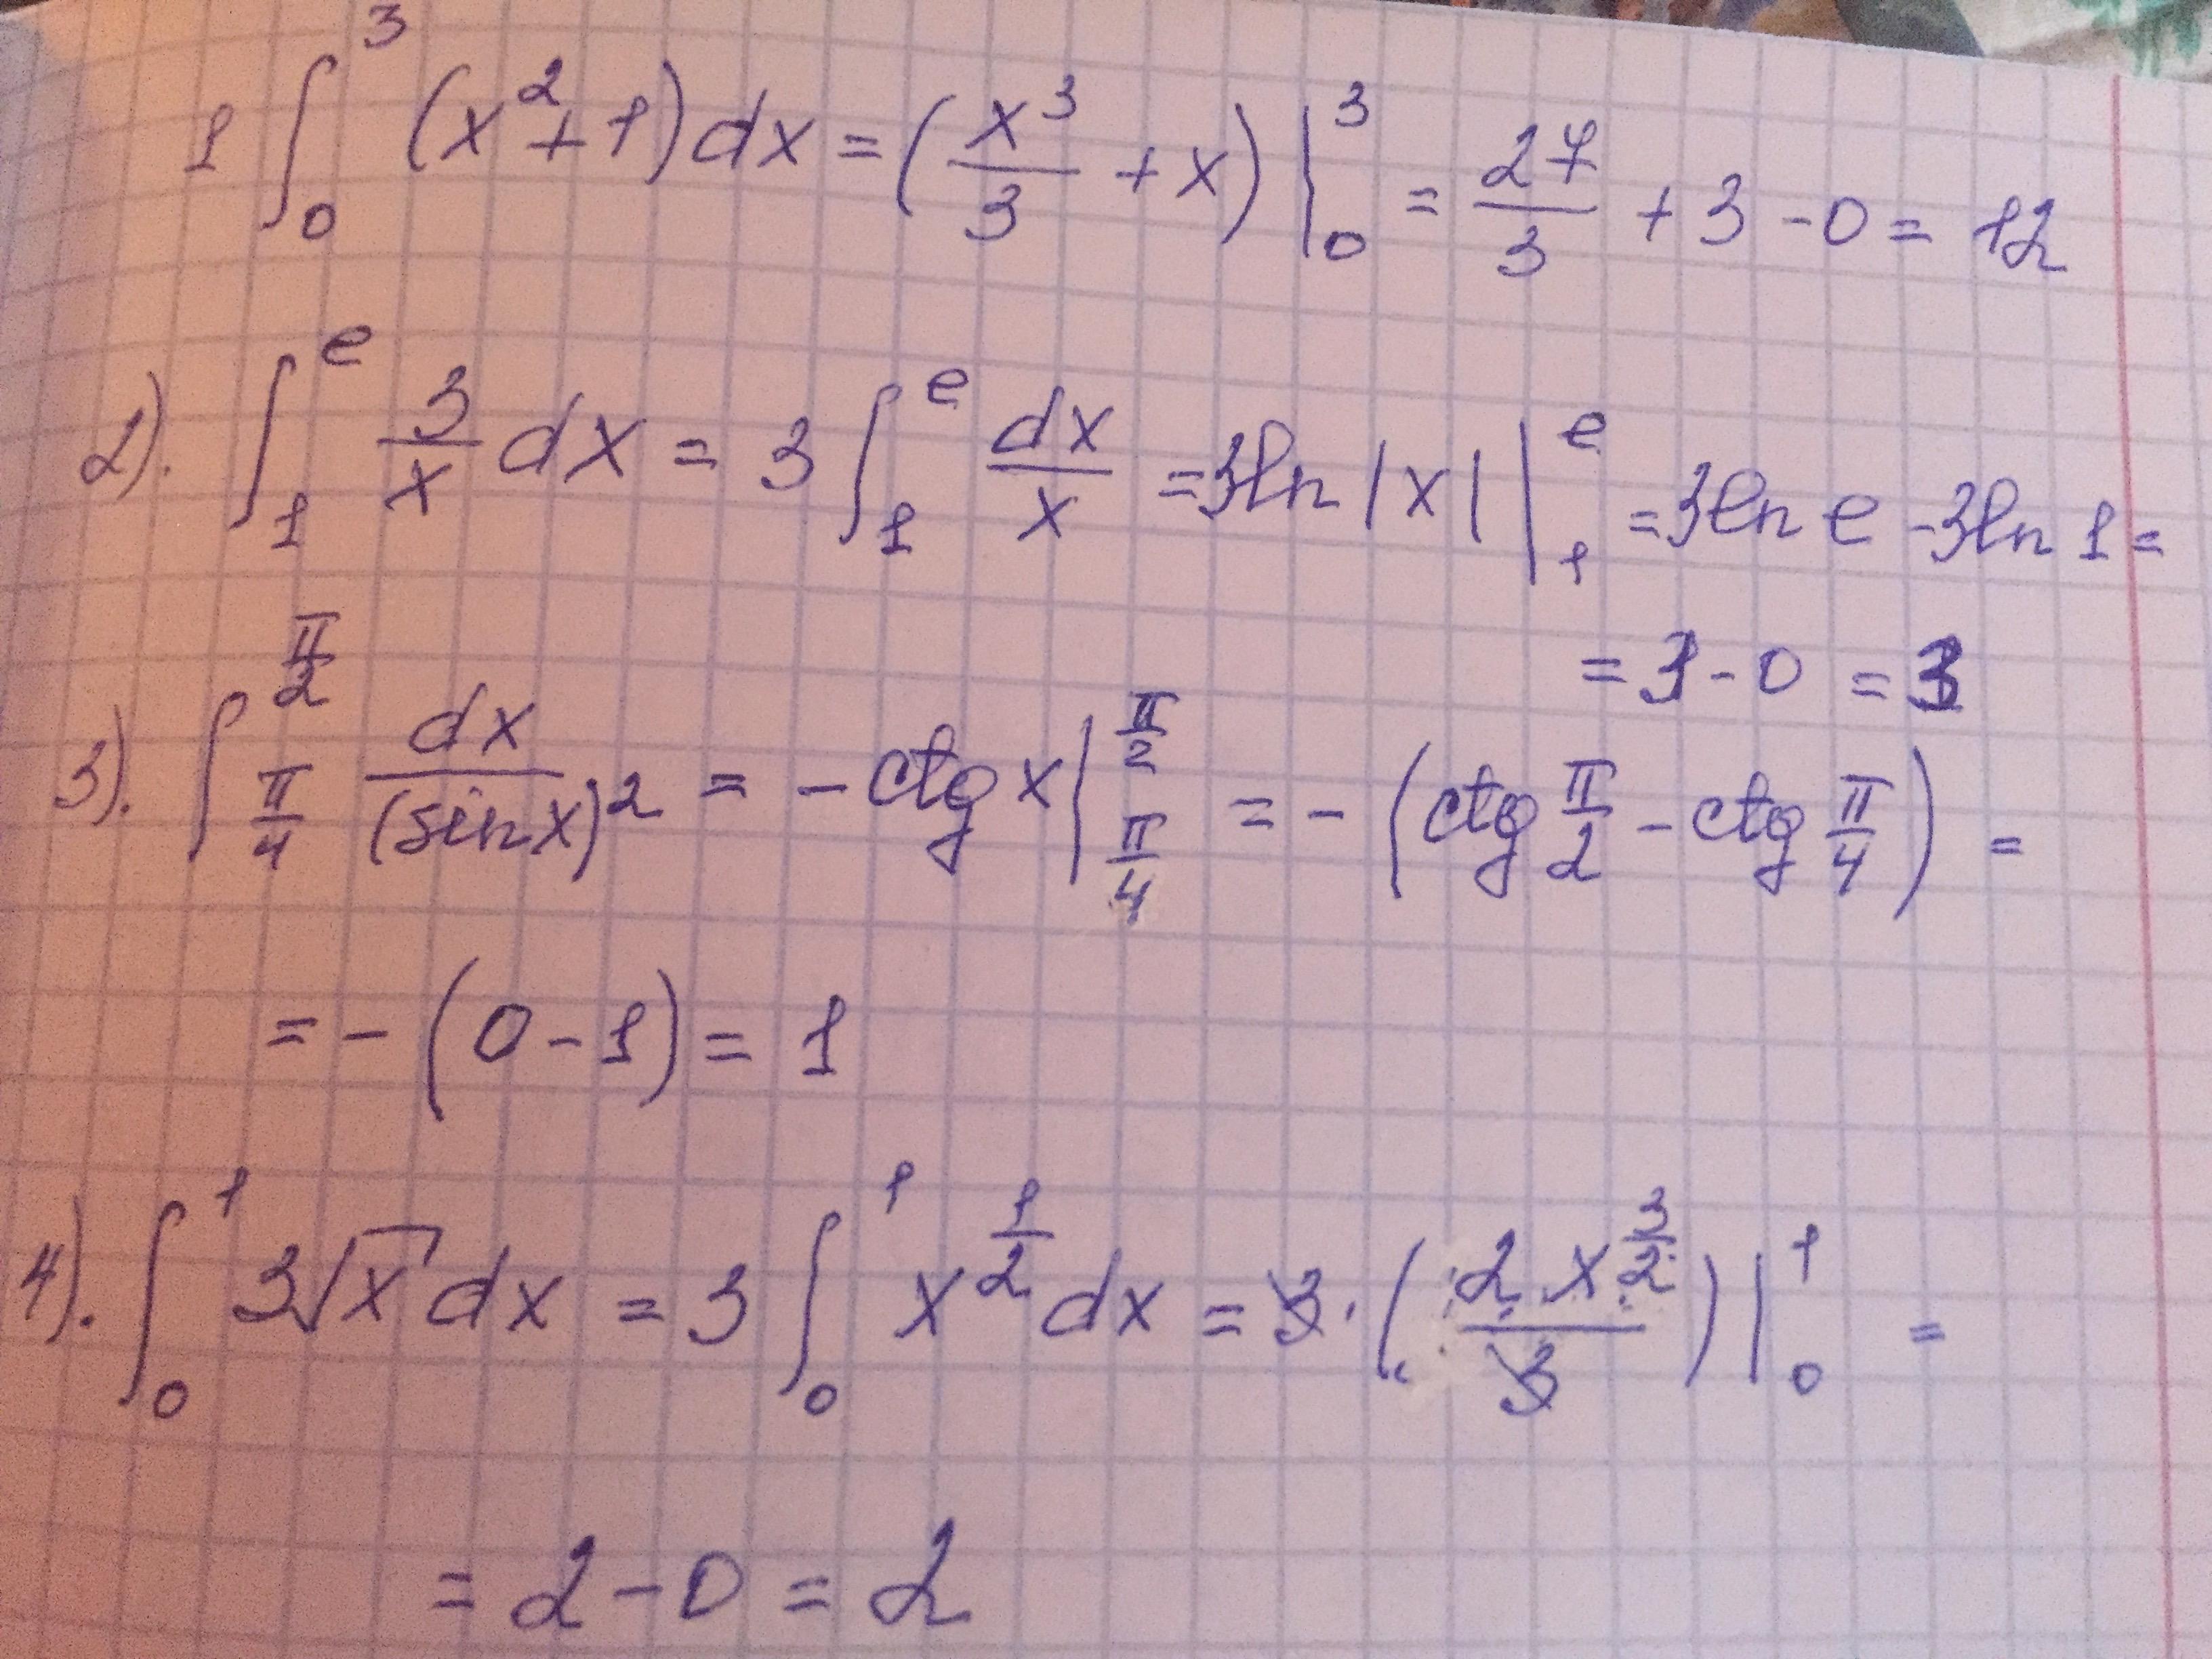 1 ∫₀³ (x²+1)dx = (x³/3 + x)|₀³ = 27/3 + 3 - 0 = 12
2). ∫₁ᵉ 3/x dx = 3∫₁ᵉ dx/x = 3ln|x| |₁ᵉ = 3ln e - 3ln 1 =
= 3 - 0 = 3
3). ∫_{π/4}^{π/2} dx/(sinx)² = - ctg x|_{π/4}^{π/2} = - (ctg π/2 - ctg π/4) =
= - (0 - 1) = 1
4). ∫₀¹ 3√x dx = 3∫₀¹ x^{1/2} dx = 3 · (2 x^{3/2}/3)|₀¹ =
= 2 - 0 = 2